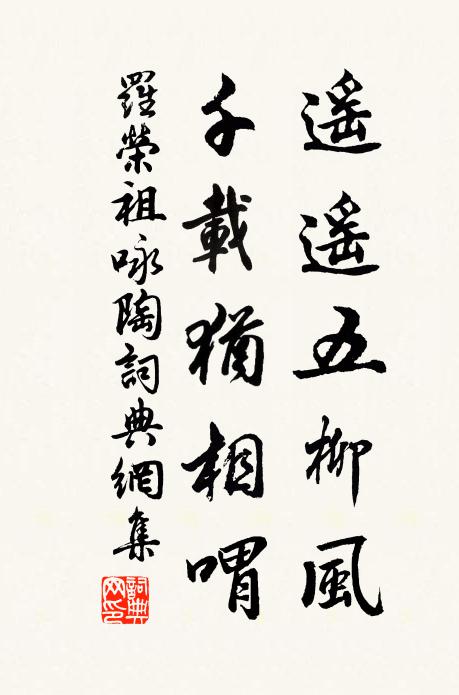 遥遥五柳風
千載猶相喟
羅榮祖咏陶詞典網集
詞典網印